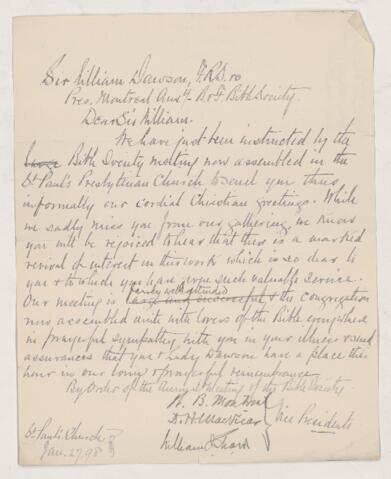 Sir William Dawson, F.R.S. &c
Pres. Montreal Auxy. B. & F. Bible Society.
Dear Sir William.
We have just been instructed by the
Bible Society meeting now assembled in the
St Paul's Presbyterian Church to send you thus
informally our cordial Christian greetings. While
we sadly miss you from our gathering we know
you will be rejoiced to hear that this is a marked
revival of interest in this work which is so dear to
you & to which you have given such valuable service.
fairly well attended
Our meeting is large and successful & the congregation
now assembled unite with lovers of the Bible everywhere
in prayerful sympathy with you in your illness & send
assurances that you & Lady Dawson have a place this
hour in our loving & prayerful remembrance.
By Order of the Annual Meeting of the Bible Society.
D. H. MacVicar
Vice Presidents
William
St Paul's Church
Jan. 27, 98